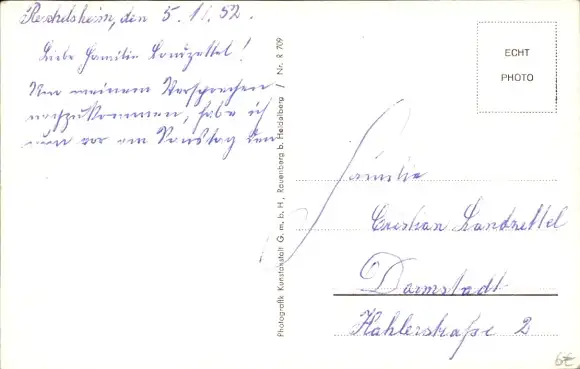 Reichelsheim, den 5. 11. 52.
Liebe Familie Landzettel!
Um meinem Versprechen
nachzukommen, habe ich
nun vor am Samstag den
Photografik Kunstanstalt G. m. b. H., Rauenberg b. Heidelberg / Nr. R 709
ECHT
PHOTO
Familie
Cristian Landzettel
Darmstadt
Kahlerstraße 2
6€